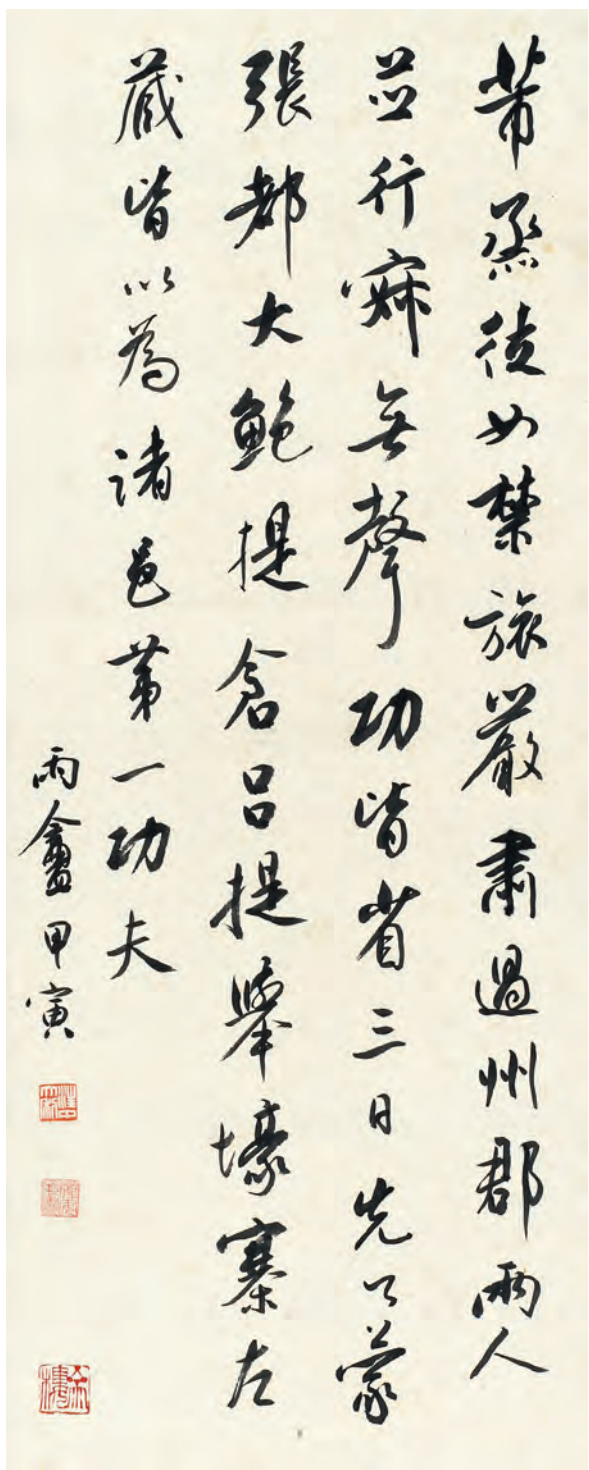 芾烝徒如禁旅嚴肅過州郡兩人
並行寂無聲功皆省三日先公蒙
張都大鮑提倉呂提舉壕寨左
藏皆以為諸邑第一功夫
雨盦甲寅